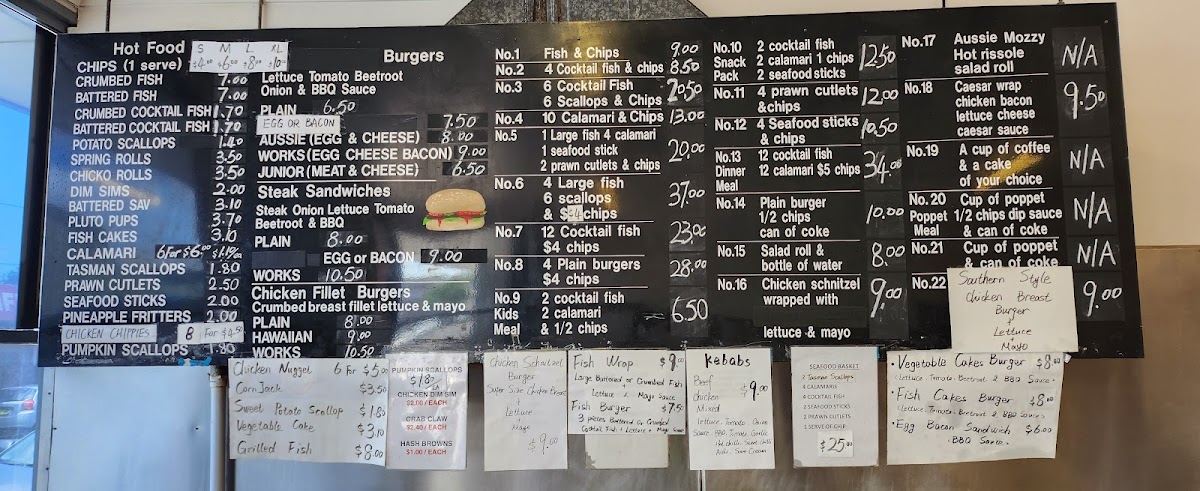 Hot Food
CHIPS (1 serve)
S M L XL
$4.00 $6.00 $8.00 $10.00
CRUMBED FISH 7.00
BATTERED FISH 7.00
CRUMBED COCKTAIL FISH 1.70
BATTERED COCKTAIL FISH 1.70
POTATO SCALLOPS 1.40
SPRING ROLLS 3.50
CHICKO ROLLS 3.50
DIM SIMS 2.00
BATTERED SAV 3.10
PLUTO PUPS 3.70
FISH CAKES 3.10
CALAMARI 6 For $6.00
TASMAN SCALLOPS 1.80
PRAWN CUTLETS 2.50
SEAFOOD STICKS 2.00
PINEAPPLE FRITTERS 2.00
CHICKEN CHIPPIES 8 For $4.50
PUMPKIN SCALLOPS 1.80
Burgers
Lettuce Tomato Beetroot
Onion & BBQ Sauce
PLAIN 6.50
EGG OR BACON 7.50
AUSSIE (EGG & CHEESE) 8.00
WORKS (EGG CHEESE BACON) 9.00
JUNIOR (MEAT & CHEESE) 6.50
Steak Sandwiches
Steak Onion Lettuce Tomato
Beetroot & BBQ
PLAIN 8.00
EGG or BACON 9.00
WORKS 10.50
Chicken Fillet Burgers
Crumbed breast fillet lettuce & mayo
PLAIN 8.00
HAWAIIAN 9.00
WORKS 10.50
No.1 Fish & Chips 9.00
No.2 4 Cocktail fish & chips 8.50
No.3 6 Cocktail Fish
6 Scallops & Chips 20.50
No.4 10 Calamari & Chips 13.00
No.5 1 Large fish 4 calamari
1 seafood stick
2 prawn cutlets & chips 20.00
No.6 4 Large fish
6 scallops
& $4 chips 37.00
No.7 12 Cocktail fish
$4 chips 23.00
No.8 4 Plain burgers
$4 chips 28.00
No.9 2 cocktail fish
Kids 2 calamari
Meal & 1/2 chips 6.50
No.10 2 cocktail fish
Snack 2 calamari 1 chips
Pack 2 seafood sticks 12.50
No.11 4 prawn cutlets
& chips 12.00
No.12 4 Seafood sticks
& chips 10.50
No.13 12 cocktail fish
Dinner 12 calamari $5 chips
Meal 34.00
No.14 Plain burger
1/2 chips
can of coke 10.00
No.15 Salad roll &
bottle of water 8.00
No.16 Chicken schnitzel
wrapped with
lettuce & mayo 9.00
No.17 Aussie Mozzy
Hot rissole
salad roll N/A
No.18 Caesar wrap
chicken bacon
lettuce cheese
caesar sauce 9.50
No.19 A cup of coffee
& a cake
of your choice N/A
No.20 Cup of poppet
Poppet 1/2 chips dip sauce
Meal & can of coke N/A
No.21 Cup of poppet
& can of coke N/A
No.22 Southern Style
Chicken Breast
Burger
+
Lettuce
Mayo 9.00
Chicken Nugget 6 For $5.00
Corn Jack $3.50
Sweet Potato Scallop $1.80
Vegetable Cake $3.10
Grilled Fish $8.00
PUMPKIN SCALLOPS
$1.80
CHICKEN DIM SIM
$2.00 / EACH
CRAB CLAW
$2.40 / EACH
HASH BROWNS
$1.00 / EACH
Chicken Schnitzel
Burger
Super Size Chicken Breast
+
Lettuce
Mayo
$9.00
Fish Wrap $9.00
Large Battered or Crumbed Fish
Lettuce & Mayo Sauce
Fish Burger $7.50
3 pieces Battered or Crumbed
Cocktail Fish & Lettuce & Mayo Sauce
Kebabs
Beef
Chicken
Mixed $9.00
Lettuce, Tomato, Onion
Sauce: BBQ, Tomato, Garlic
Hot chilli, Sweet chilli
Aioli, Sour Cream
SEAFOOD BASKET
2 Tasman Scallops
4 CALAMARIS
4 COCKTAIL FISH
2 SEAFOOD STICKS
2 PRAWN CUTLETS
1 SERVE OF CHIP
$25.00
• Vegetable Cakes Burger $8.00
(Lettuce, Tomato, Beetroot & BBQ Sauce)
• Fish Cakes Burger $8.00
(Lettuce, Tomato, Beetroot & BBQ Sauce)
• Egg Bacon Sandwich $6.00
. BBQ Sauce .